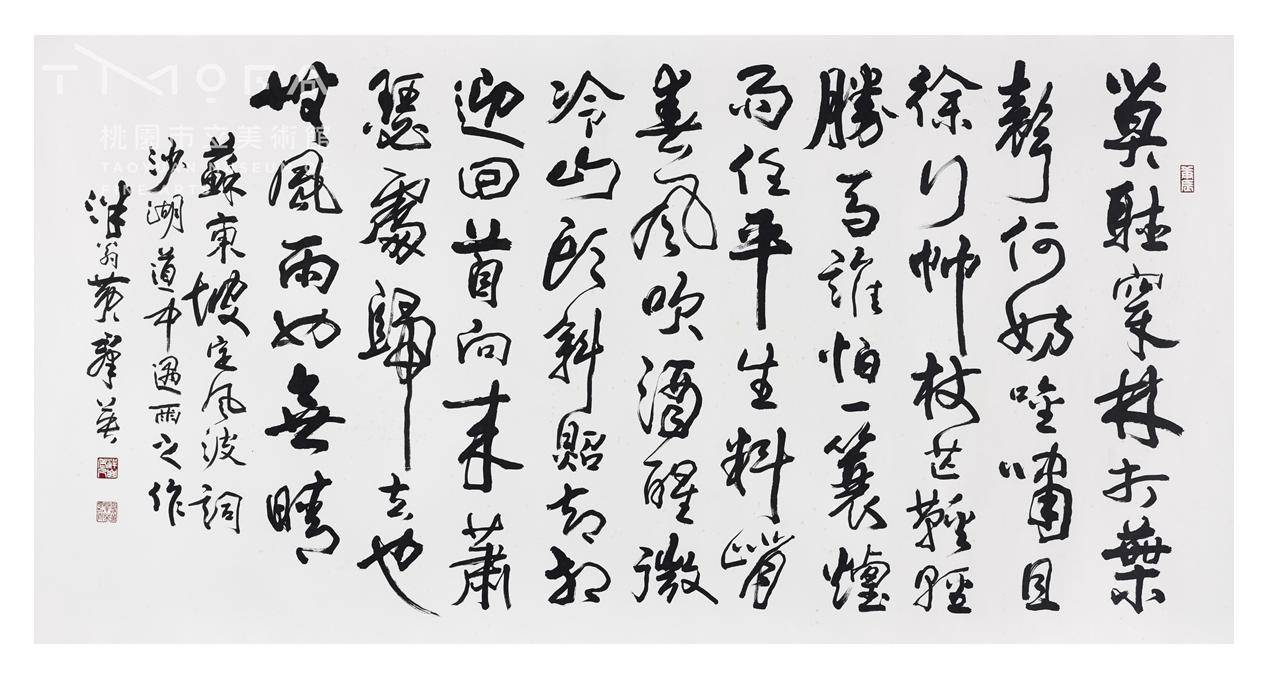 莫聽穿林打葉
聲何妨吟嘯且
徐行竹杖芒鞵輕
勝馬誰怕一蓑煙
雨任平生料峭
春風吹酒醒微
冷山頭斜照却相
迎回首向來蕭
瑟處歸去也
無風雨也無晴
蘇東坡定風波詞
沙湖道中遇雨之作
翁黃羣英
TMOFA
桃園市立美術館
TAOYUAN MUSEUM OF
FINE ARTS